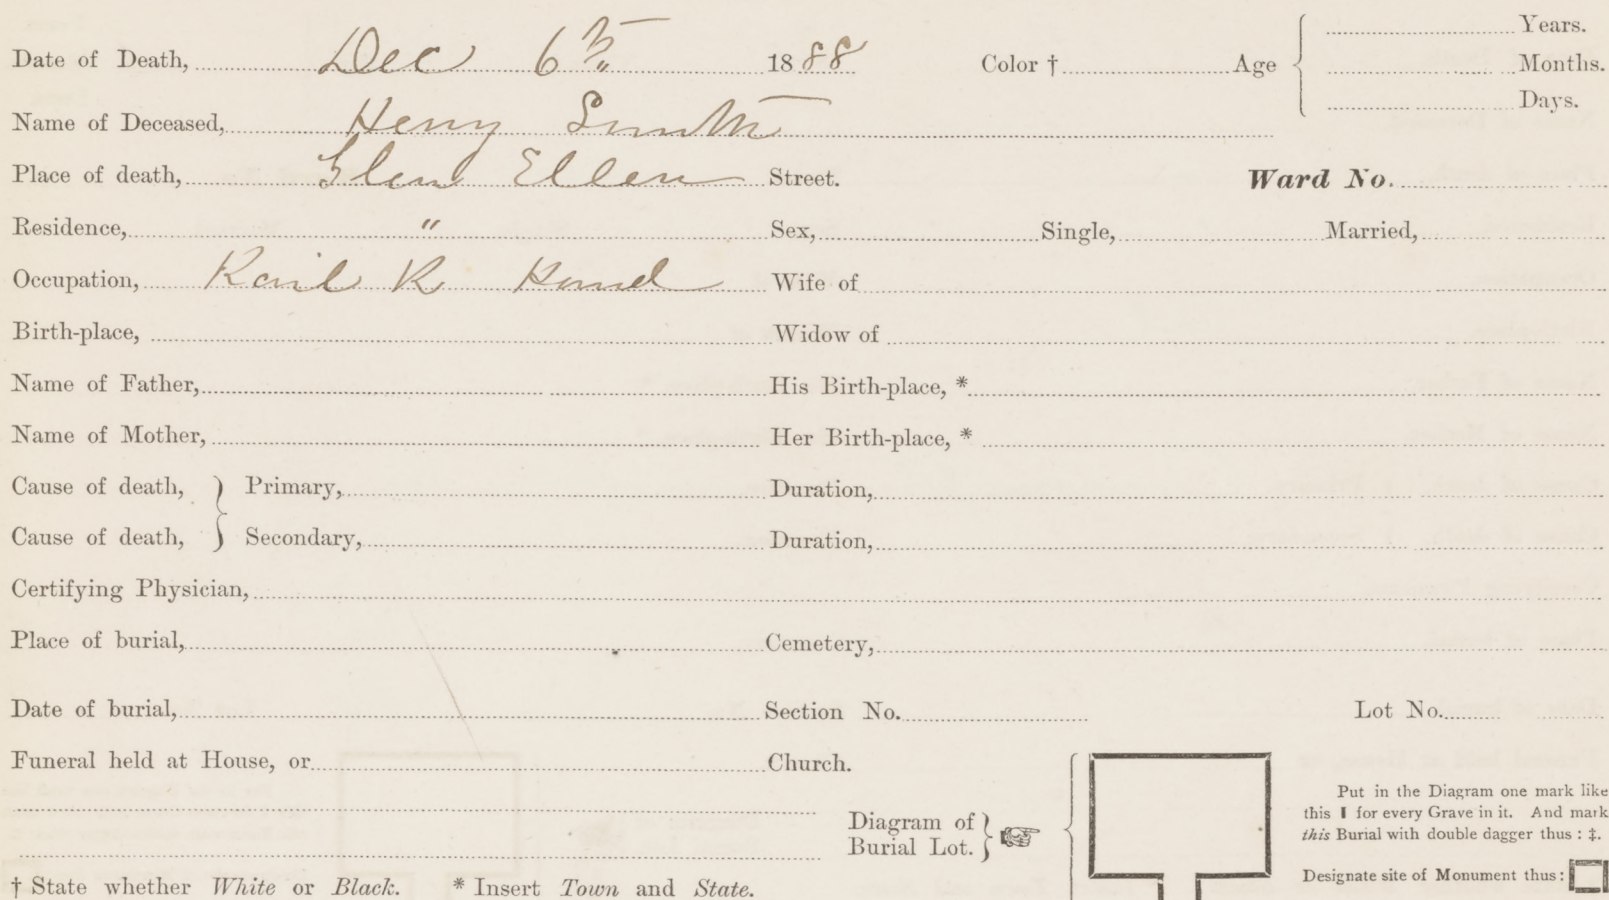 Date of Death, Dec 6th 1888 Color † Age Years.
Months.
Days.
Name of Deceased, Henry Smith
Place of death, Glen Ellen Street. Ward No.
Residence, " Sex, Single, Married,
Occupation, Rail R Hand Wife of
Birth-place, Widow of
Name of Father, His Birth-place, *
Name of Mother, Her Birth-place, *
Cause of death, } Primary, Duration,
Cause of death, } Secondary, Duration,
Certifying Physician,
Place of burial, Cemetery,
Date of burial, Section No. Lot No.
Funeral held at House, or Church.
Diagram of
Burial Lot.
Put in the Diagram one mark like
this ▮ for every Grave in it. And mark
this Burial with double dagger thus : ‡.
Designate site of Monument thus :
† State whether White or Black. * Insert Town and State.